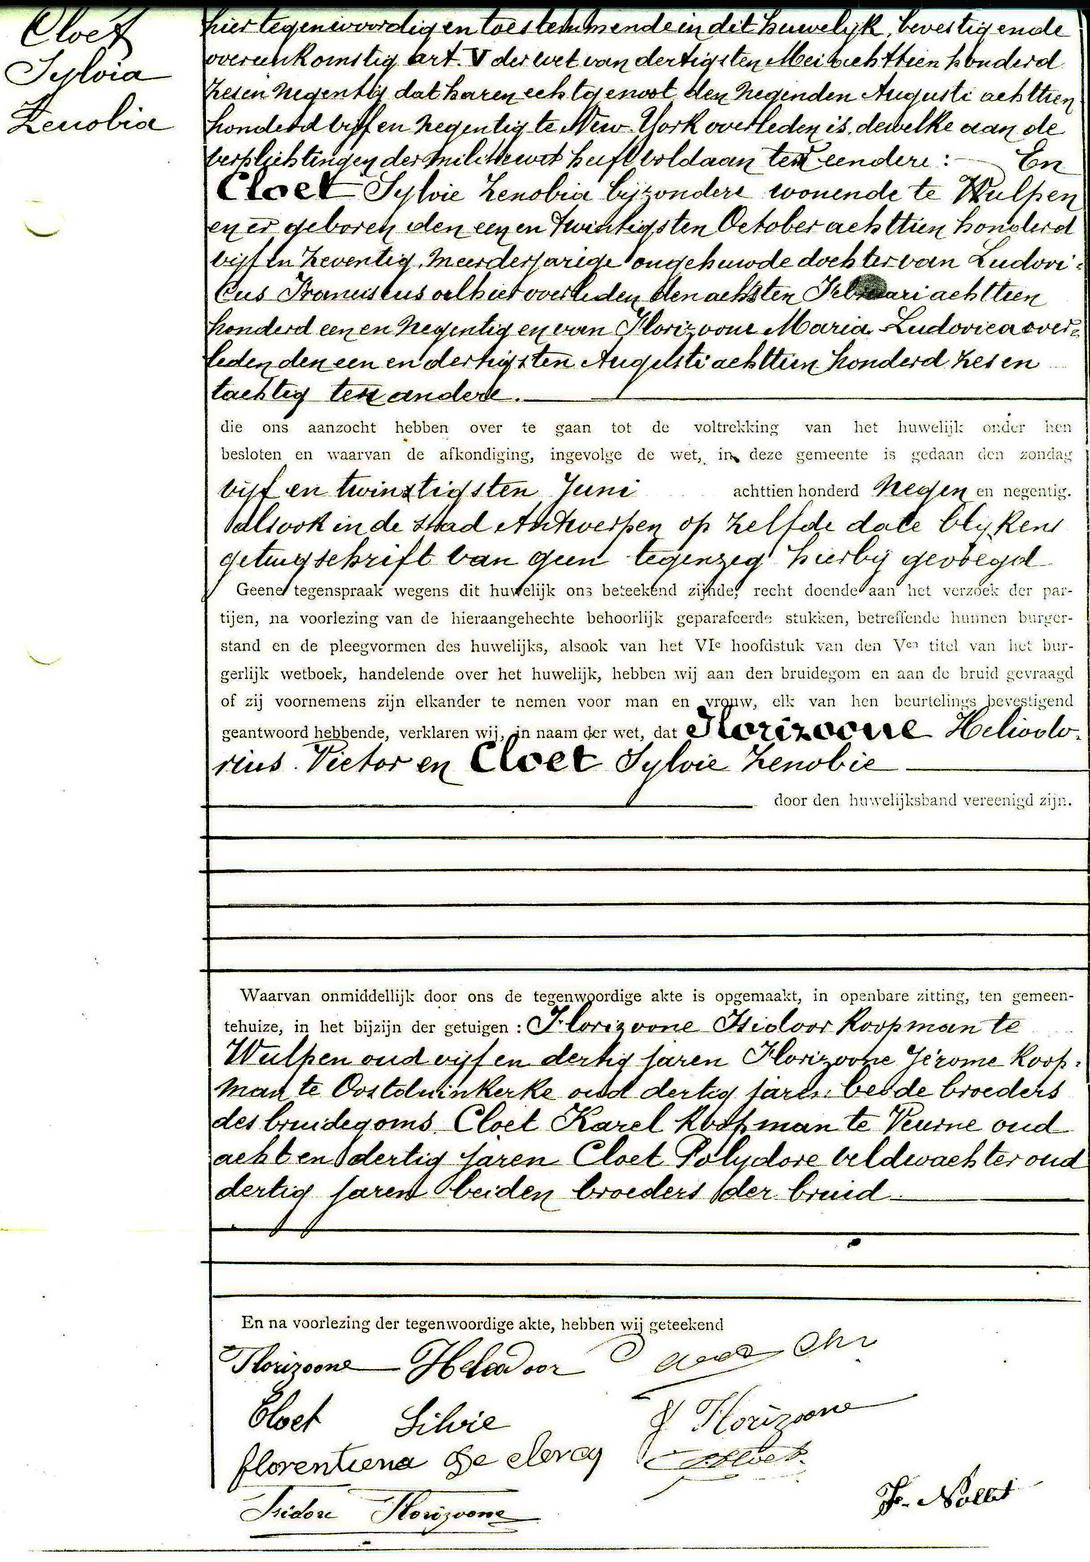 Cloet
Sylvia
Zenobia
hier tegenwoordig en toestemmende in dit huwelyk, bevestigende
overeenkomstig art. V der wet van dertigsten Mei achttien honderd
zes en negentig dat haren echtgenoot den negenden Augusti achttien
honderd vijf en negentig te New-York overleden is, dewelke aan de
verplichtingen der militiewet heeft voldaan ten eendere: — En
Cloet Sylvie Zenobia byzondere wonende te Wulpen
en er geboren den een en twintigsten October achttien honderd
vijf en zeventig, meerderjarige ongehuwde dochter van Ludovi-
cus Franciscus alhier overleden den achsten Februari achttien
honderd een en negentig en van Florizoone Maria Ludovica over-
leden den een en dertigsten Augusti achttien honderd zes en
tachtig ten andere.
die ons aanzocht hebben over te gaan tot de voltrekking van het huwelijk onder hen
besloten en waarvan de afkondiging, ingevolge de wet, in deze gemeente is gedaan den zondag
vijf en twintigsten Juni achttien honderd negen en negentig.
alsook in de stad Antwerpen op zelfde date blykens
getuigschrift van geen tegenzeg hierby gevoegd
Geene tegenspraak wegens dit huwelijk ons beteekend zijnde, recht doende aan het verzoek der par-
tijen, na voorlezing van de hieraangehechte behoorlijk geparafeerde stukken, betreffende hunnen burger-
stand en de pleegvormen des huwelijks, alsook van het VIe hoofdstuk van den Ven titel van het bur-
gerlijk wetboek, handelende over het huwelijk, hebben wij aan den bruidegom en aan de bruid gevraagd
of zij voornemens zijn elkander te nemen voor man en vrouw, elk van hen beurtelings bevestigend
geantwoord hebbende, verklaren wij, in naam der wet, dat Florizoone Heliodo-
rius Victor en Cloet Sylvie Zenobie
door den huwelijksband vereenigd zijn.
Waarvan onmiddellijk door ons de tegenwoordige akte is opgemaakt, in openbare zitting, ten gemeen-
tehuize, in het bijzijn der getuigen : Florizoone Isidoor koopman te
Wulpen oud vijf en dertig jaren Florizoone Jérome koop-
man te Oostduinkerke oud dertig jaren beide broeders
des bruidegoms Cloet Karel koopman te Veurne oud
acht en dertig jaren Cloet Polydore veldwachter oud
dertig jaren beiden broeders der bruid
En na voorlezing der tegenwoordige akte, hebben wij geteekend
Florizoone Heliodoor
Cloet Silvie J Florizoone
florentiena De clercq Cloet
Isidore Florizoone
F. Nollet